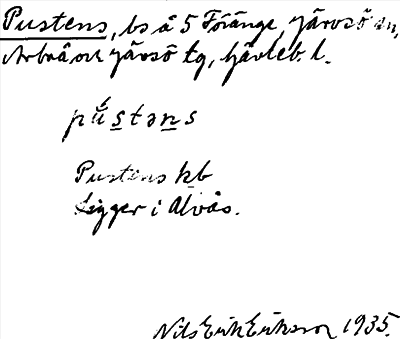 Pustens, bs å 5 Föränge, Järvsö sn,
Arbrå och Järvsö tg, Gävleb. l.
pŭ́stəns
Pustens kb
Ligger i Alvås.
Nils Erik Eriksson 1935.